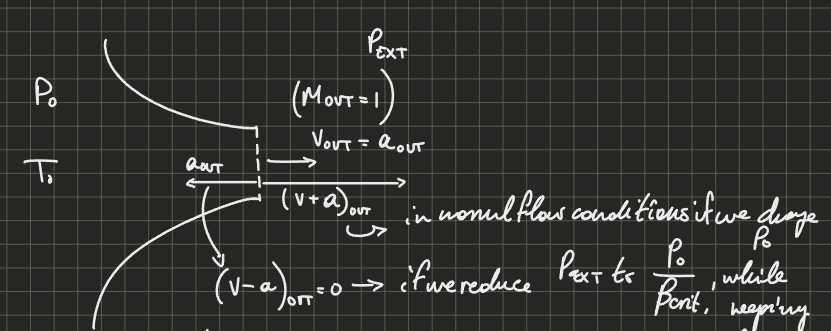 P_EXT
P_0
(M_OUT = 1)
V_OUT = a_OUT
T_0
a_OUT
(V+a)_OUT
in normal flow conditions if we change
P_0
(V-a)_OUT = 0 → if we reduce P_EXT to P_0/β_crit, while
keeping